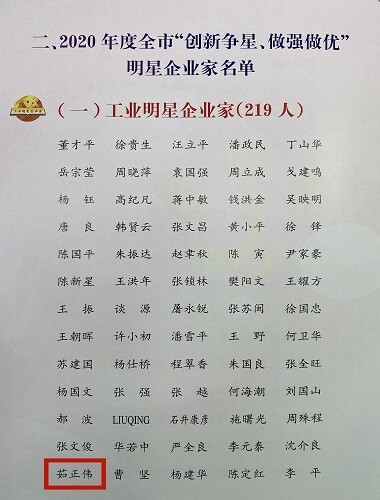 二、2020年度全市“创新争星、做强做优”
明星企业家名单
（一）工业明星企业家（219人）
董才平 徐贵生 汪立平 潘政民 丁山华
岳宗莹 周晓萍 袁国强 周立成 戈建鸣
杨钰 高纪凡 蒋中敏 钱洪金 吴映明
唐良 韩贤云 张文昌 黄小平 徐锋
陈国平 朱振达 赵聿秋 陈寅 尹家豪
陈新星 王洪年 张锁林 樊阳文 王耀方
王振 谈源 屠永锐 张苏闽 徐国忠
王朝晖 许小初 潘雪平 王野 何卫华
苏建国 杨仕桥 程翠香 朱国良 张全旺
杨国文 张强 张越 何海潮 刘国山
郝波 LIUQING 石井康彦 施曙光 周殊程
张文俊 华若中 严全良 李元泰 沈介良
茹正伟 曹坚 杨建华 陈定红 李平